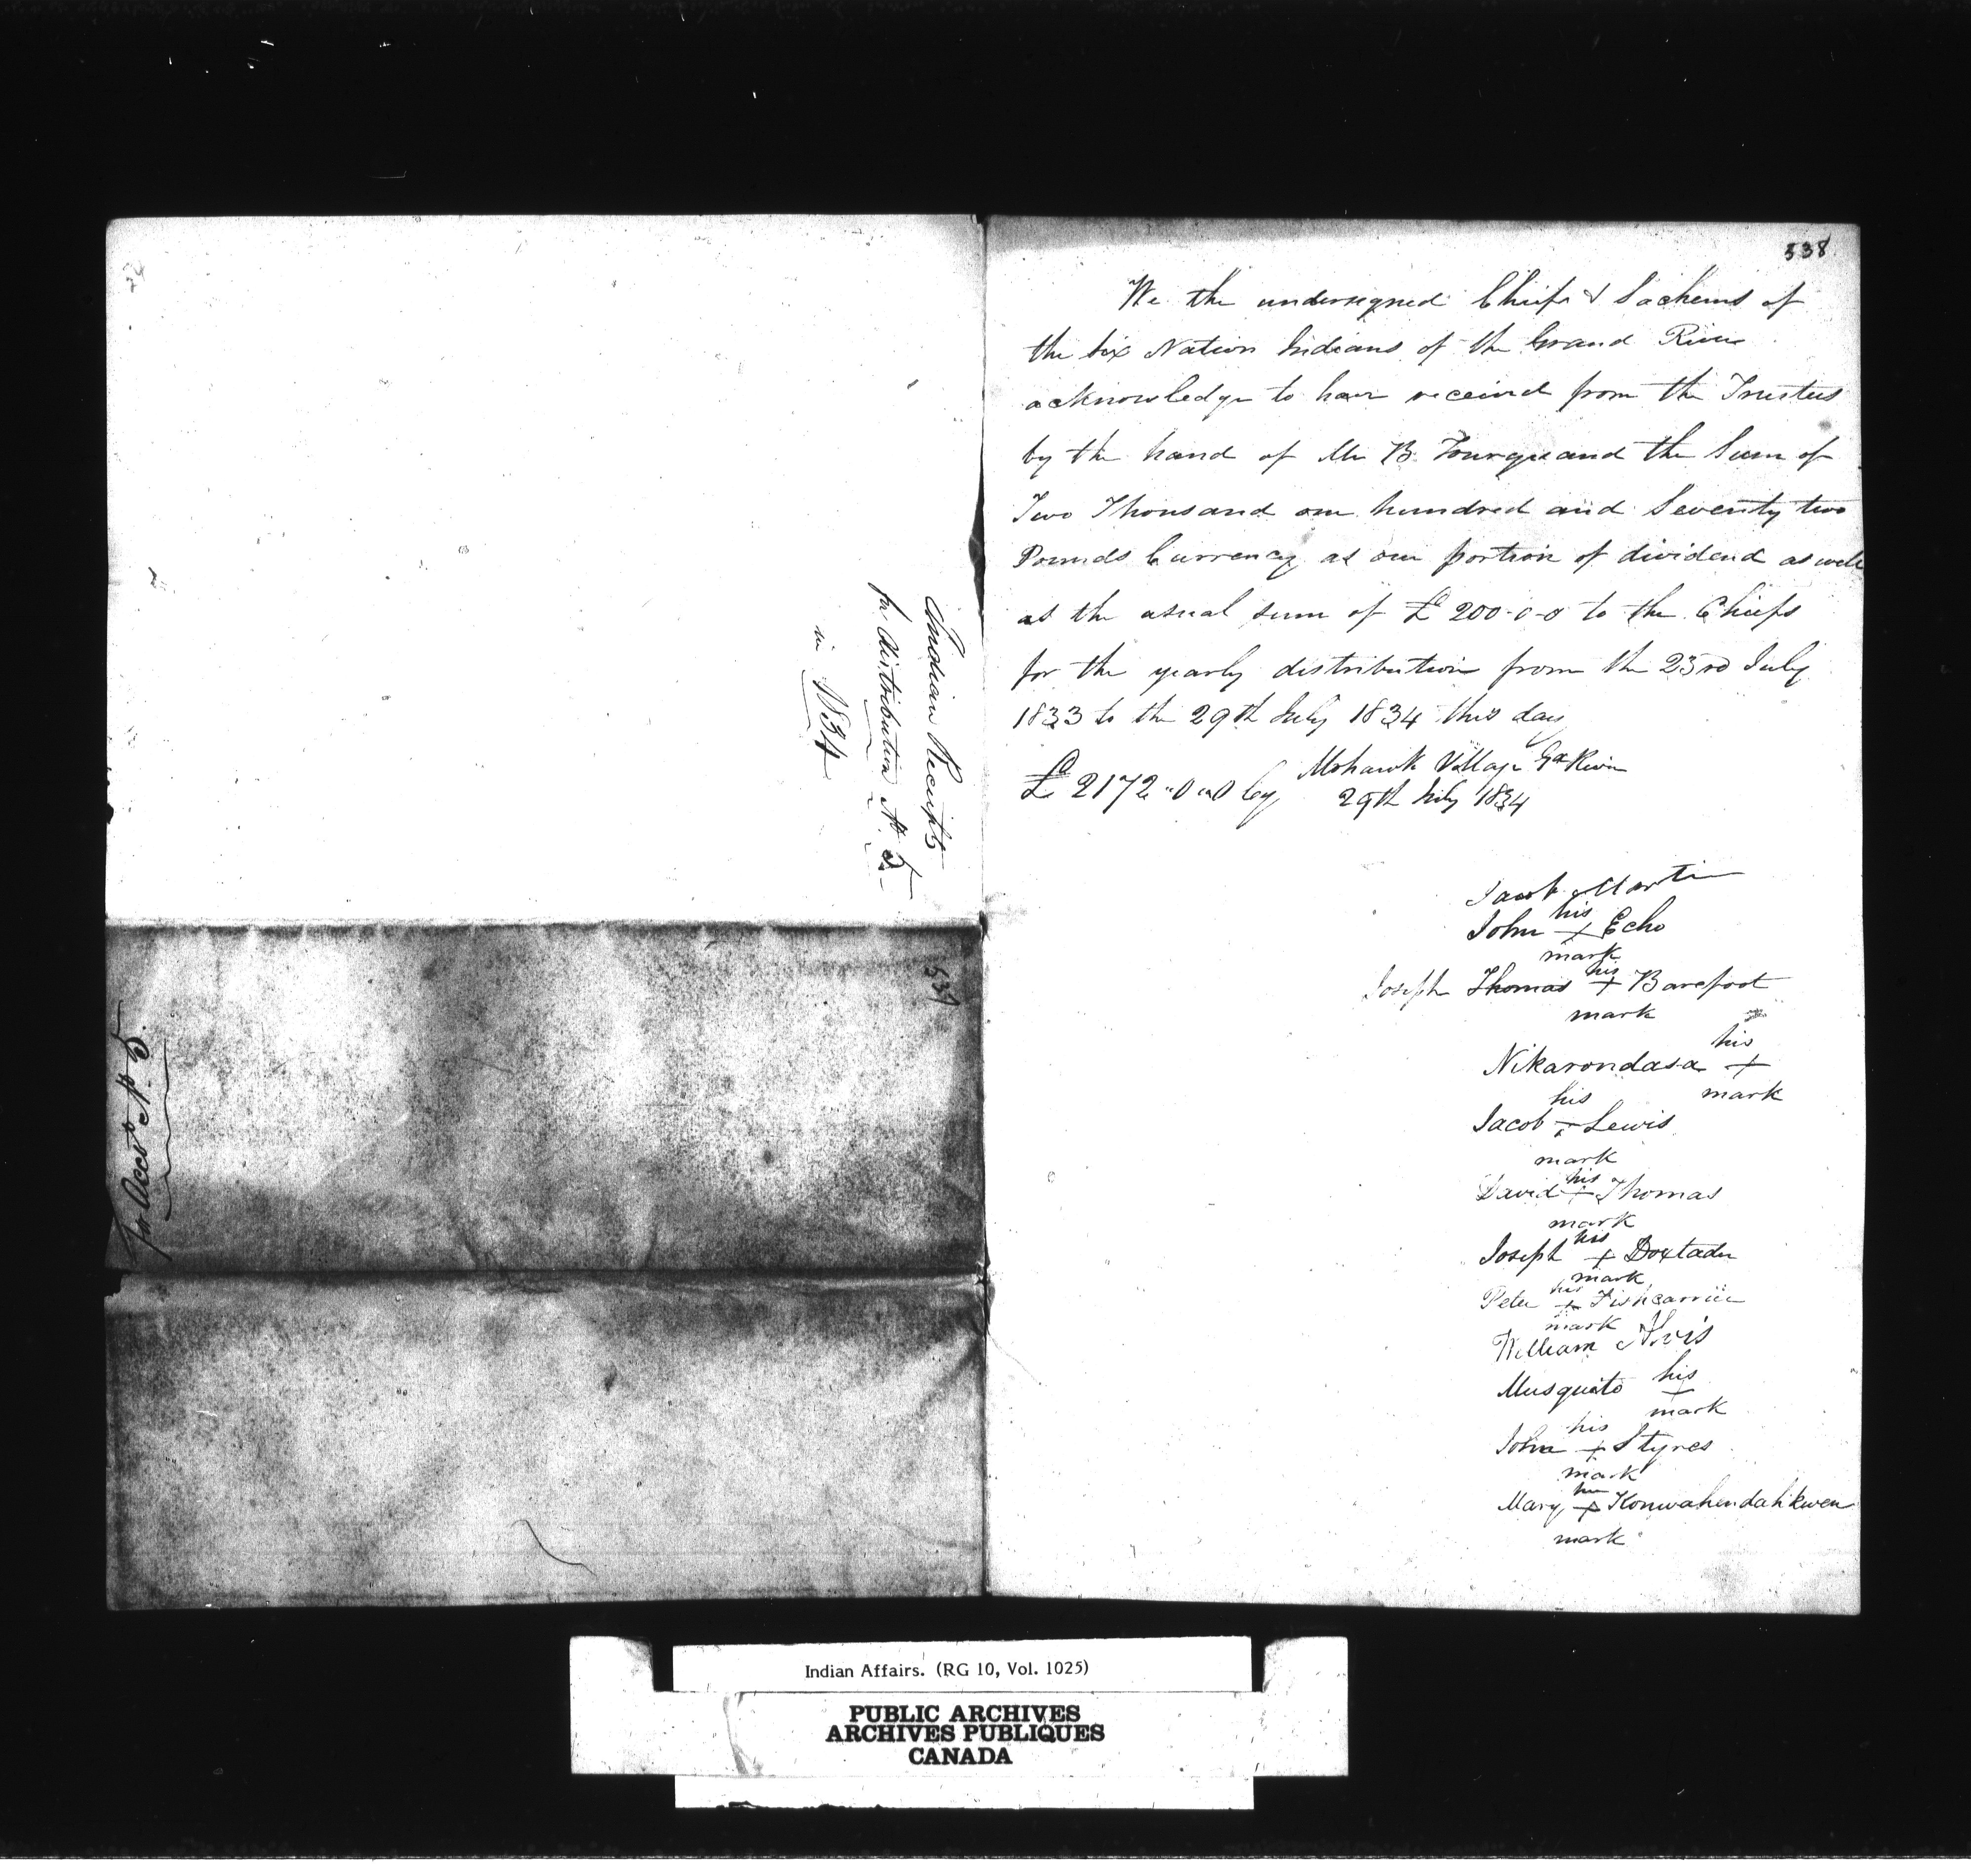 Indian Receipts
for distribution No. 5
in 1834
537
for Acct No. 5.
538
We the undersigned Chiefs & Sachems of
the Six Nation Indians of the Grand River
acknowledge to have received from the Trustees
by the hand of Mr B. Tourquand the Sum of
Two Thousand one hundred and Seventy two
Pounds Currency as our portion of dividend as well
as the usual sum of £ 200-0-0 to the Chiefs
for the yearly distribution from the 23rd July
1833 to the 29th July 1834 this day
£ 2172 "0 "0 Cy Mohawk Village Gd River
29th July 1834
Jacob Martin
his
John + Echo
mark
his
Joseph Thomas + Barefoot
mark
his
Nikarondasa +
mark
his
Jacob + Lewis
mark
his
David + Thomas
mark
his
Joseph + Doxtader
mark
his
Peter + Fishcarrier
mark
William
Musquito his
+
mark
his
John + Styres
mark
her
Mary + Konwahendahkwen
mark
Indian Affairs. (RG 10, Vol. 1025)
PUBLIC ARCHIVES
ARCHIVES PUBLIQUES
CANADA